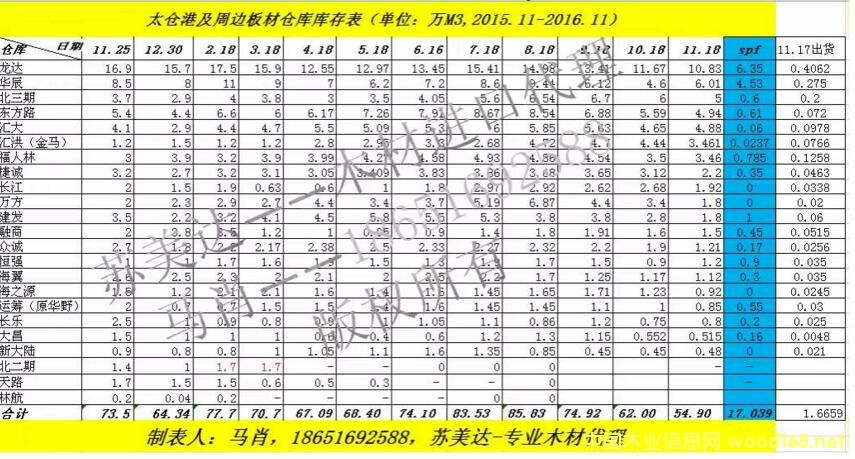 太仓港及周边板材仓库库存表（单位：万M3,2015.11-2016.11）
仓库 日期 11.25 12.30 2.18 3.18 4.18 5.18 6.16 7.18 8.18 9.12 10.18 11.18 spf 11.17出货
龙达 16.9 15.7 17.5 15.9 12.55 12.97 13.45 15.41 14.98 13.41 11.67 10.83 6.35 0.4062
华辰 8.5 8 11 9 7 6.2 7.2 8.6 9.44 6.12 4.6 6.01 4.53 0.275
北三期 3.7 2.9 4 3.8 3 3.5 4.05 5.6 5.54 6.7 6 5 0.6 0.2
东方路 5.4 4.4 6.6 6 6.17 7.26 7.91 8.67 8.54 6.88 5.59 4.94 0.61 0.072
汇大 4.1 2.9 4.4 4.7 5.5 5.09 5.3 6 5.85 5.63 4.65 4.88 0.06 0.0978
汇洪（金马） 1.2 1.5 1.2 1.2 2.8 2.95 3.3 2.68 4.72 4.7 4.44 3.461 0.0237 0.0766
福人林 3 3.9 3.2 3.9 3.99 4.27 4.58 4.93 4.86 4.54 3.5 3.46 0.785 0.1258
捷诚 3.2 2.7 3.2 3.1 3.05 3.409 3.83 3.86 3.68 3.65 3.12 2.2 0.35 0.0463
长江 2 1.5 1.9 0.63 0.6 1 1.8 2.97 2.92 2.62 2.68 1.92 0 0.0338
万方 2 2.3 2.9 2.7 4.4 3.4 3.7 5.19 6.87 4.4 3.4 1.8 0 0.02
建发 3.5 2.2 3.2 4.1 4.5 5.8 5.5 5.3 3.8 3.8 2.8 1.8 1 0.06
融商 2 3.8 3.5 1.2 1 0.95 0.9 1.4 1.8 1.91 1.6 1.5 0.45 0.0515
众诚 2.7 1.8 2.2 2.17 2.38 2.5 2.33 2.27 2.32 2.2 1.9 1.21 0.17 0.0256
恒强 1 1 1.7 1.6 1.9 1.5 1.3 1.1 1.7 1.5 0.9 1.2 0.9 0.035
海翼 2.6 2.5 2.3 2 2.1 2 2.5 2.2 1.7 1.25 1.17 1.12 0.3 0.035
海之源 1.5 1.2 2.1 2.1 1.6 1.4 1.5 1.45 1.65 1.71 1.23 0.92 0 0.0245
运筹（原华野） 2 0.1 0.7 1.5 1.5 1.4 1.6 1.1 1.1 1.1 1 0.85 0.55 0.03
长乐 2.5 1 0.9 0.8 0.9 1 1.05 1.1 0.86 1.2 0.75 0.8 0.2 0.025
大昌 1.5 1 1 1 0.6 0.4 0.6 1.2 1.3 1.15 0.552 0.515 0.16 0.0048
新大陆 0.9 0.8 0.8 1 1.05 1.1 1.6 1.35 0.85 0.45 0.45 0.48 0 0.021
北二期 1.4 1 1.7 1.7 - - 0 0 - - -
天路 1.7 1.5 1.5 0.6 0.5 0.3 - - 0 - - -
林航 0.2 0.04 0.2 - 0 0
合计 73.5 64.34 77.7 70.7 67.09 68.40 74.10 83.53 85.83 74.92 62.00 54.90 17.039 1.6659
制表人：马肖，18651692588，苏美达-专业木材代理
苏美达——木材进口代理
马肖——18651692588
版权所有
中国木业信息网 wood168.net